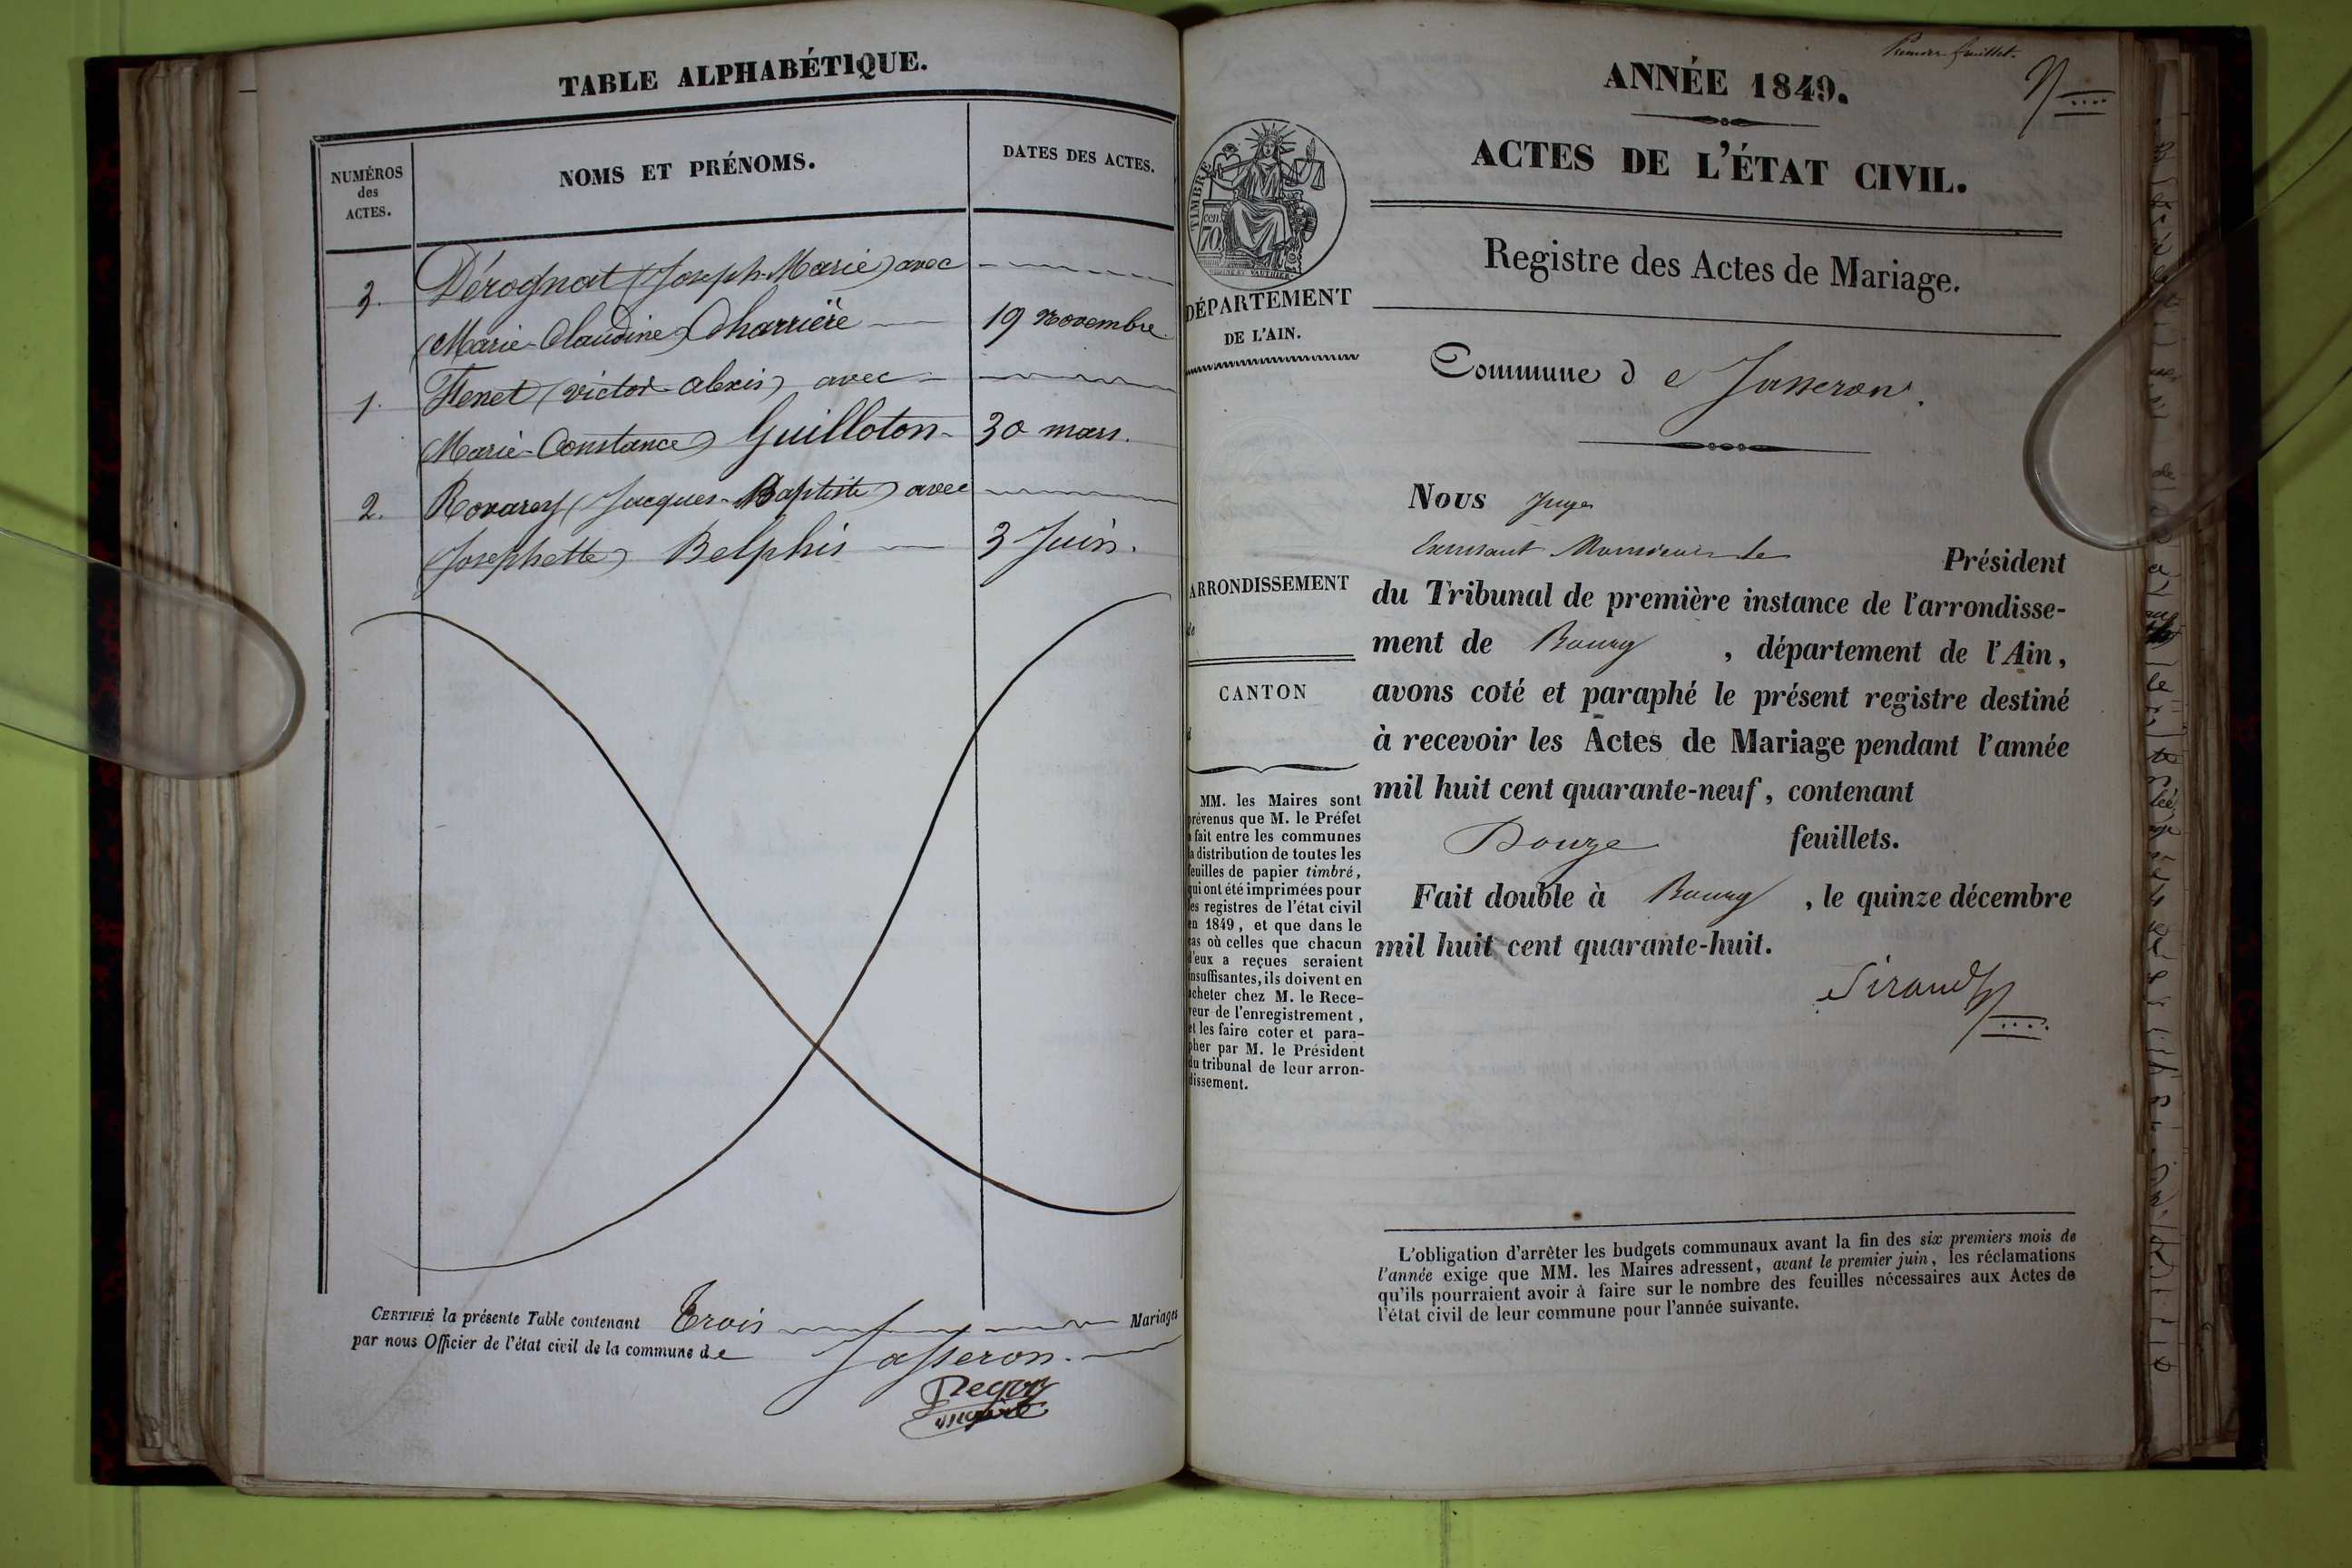 TABLE ALPHABÉTIQUE.
NUMÉROS
des
ACTES.
NOMS ET PRÉNOMS.
DATES DES ACTES.
3. Dérognat (Joseph-Marie) avec
(Marie-Claudine) Charrière 19 Novembre
1. Fenet (victor alexis) avec
(Marie-Constance) Guilloton 30 mars.
2. Rovarey (Jacques-Baptiste) avec
(Josephette) Belphis 3 Juin.
CERTIFIÉ la présente Table contenant Trois Mariages
par nous Officier de l'état civil de la commune de Jasseron.
maire
Premier feuillet.
ANNÉE 1849.
ACTES DE L'ÉTAT CIVIL.
Registre des Actes de Mariage.
TIMBRE
70 cen.
DÉPARTEMENT
DE L'AIN.
Commune d e Jasseron.
Nous Juge
Président
du Tribunal de première instance de l'arrondisse-
ment de Bourg , département de l'Ain,
avons coté et paraphé le présent registre destiné
à recevoir les Actes de Mariage pendant l'année
mil huit cent quarante-neuf, contenant
Douze feuillets.
Fait double à Bourg , le quinze décembre
mil huit cent quarante-huit.
Sirand
ARRONDISSEMENT
de
CANTON
d
MM. les Maires sont
prévenus que M. le Préfet
a fait entre les communes
la distribution de toutes les
feuilles de papier timbré,
qui ont été imprimées pour
les registres de l'état civil
en 1849, et que dans le
cas où celles que chacun
d'eux a reçues seraient
insuffisantes, ils doivent en
acheter chez M. le Rece-
veur de l'enregistrement,
et les faire coter et para-
pher par M. le Président
du tribunal de leur arron-
dissement.
L'obligation d'arrêter les budgets communaux avant la fin des six premiers mois de
l'année exige que MM. les Maires adressent, avant le premier juin, les réclamations
qu'ils pourraient avoir à faire sur le nombre des feuilles nécessaires aux Actes de
l'état civil de leur commune pour l'année suivante.